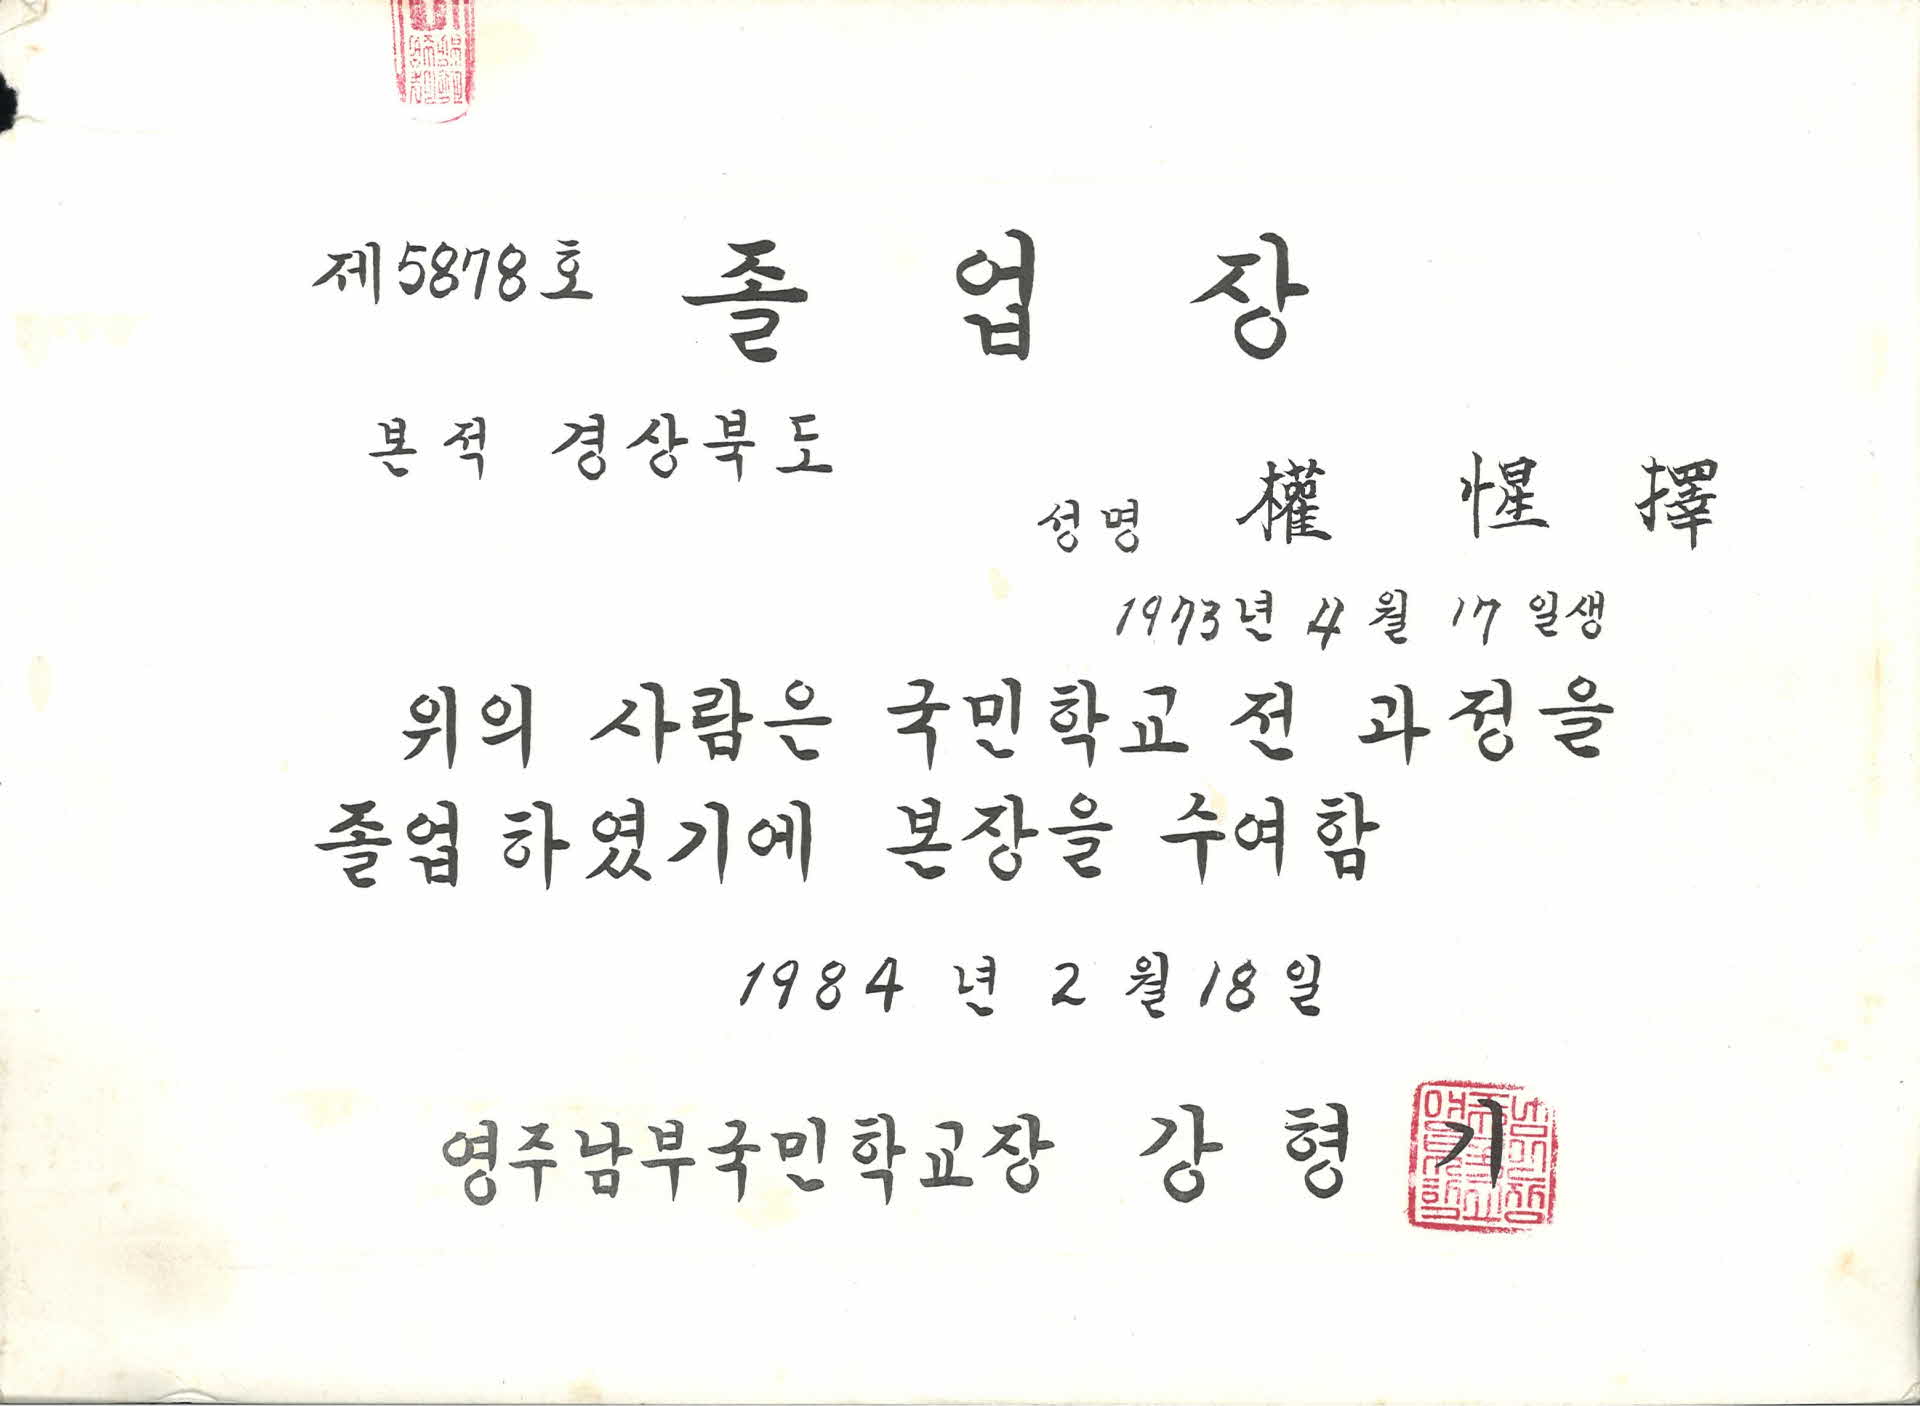 제5878호 졸업장
본적 경상북도
성명 權 惺 擇
1973년 4월 17일생
위의 사람은 국민학교 전 과정을
졸업하였기에 본장을 수여함
1984년 2월 18일
영주남부국민학교장 강형기